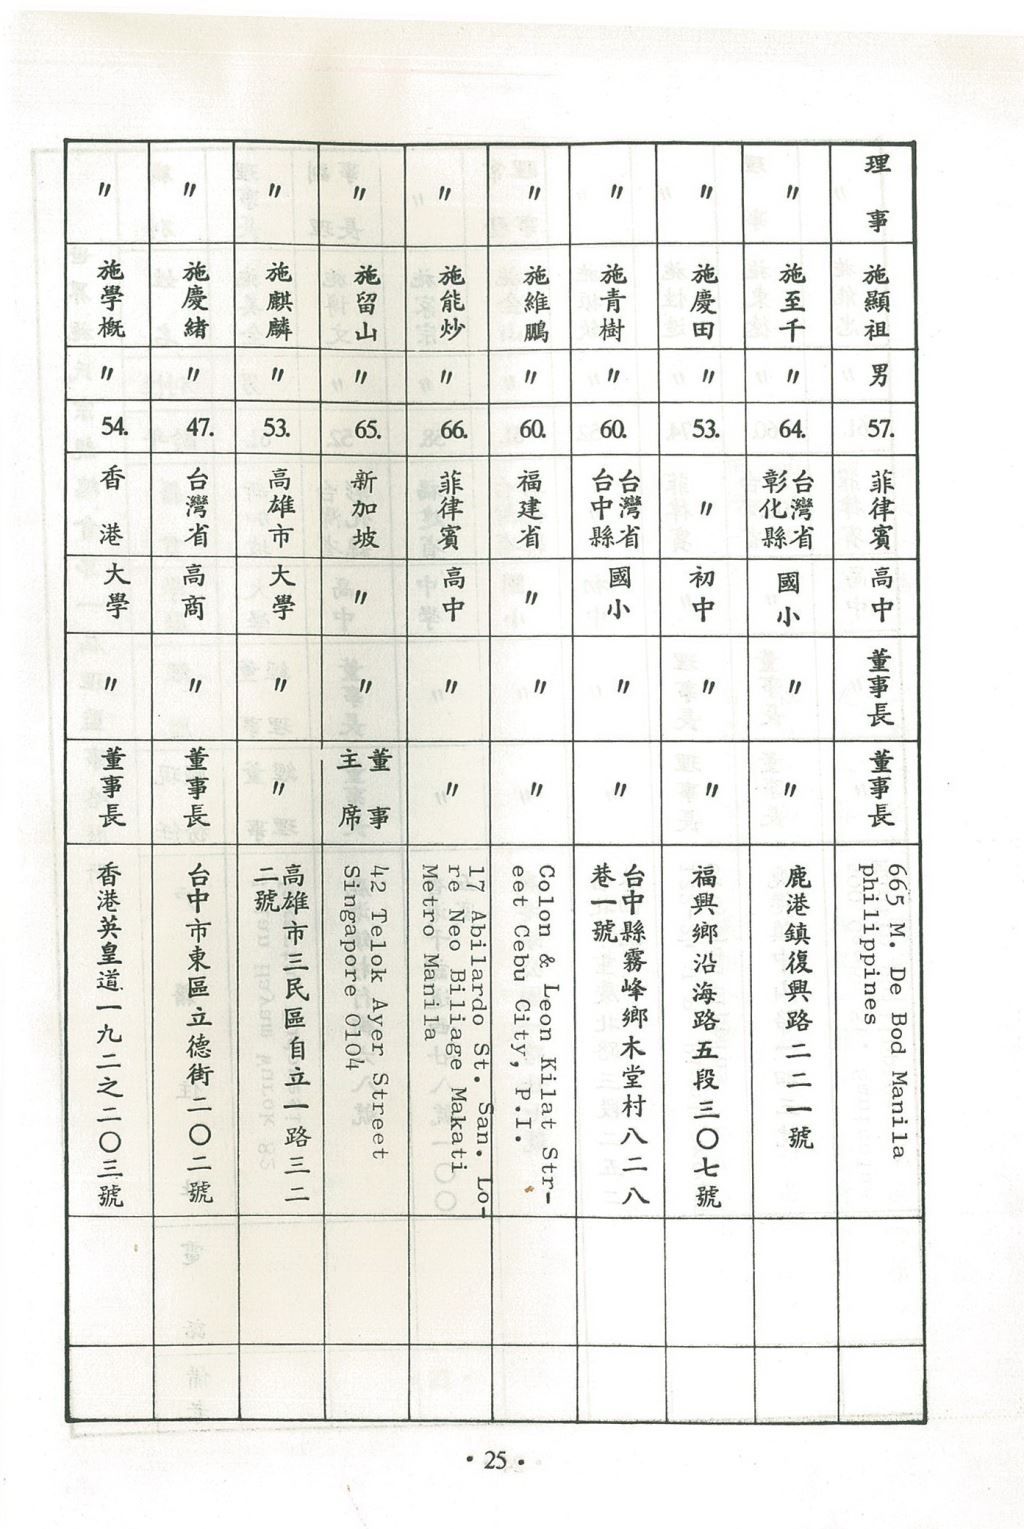 理事
施顯祖
男
57.
菲律賓
高中
董事長
董事長
665 M. De Bod Manila
philippines
〃
施至千
〃
64.
台灣省
彰化縣
國小
〃
〃
鹿港鎮復興路二二一號
〃
施慶田
〃
53.
〃
初中
〃
〃
福興鄉沿海路五段三〇七號
〃
施青樹
〃
60.
台灣省
台中縣
國小
〃
〃
台中縣霧峰鄉木堂村八二八
巷一號
〃
施維鵬
〃
60.
福建省
〃
〃
〃
Colon & Leon Kilat Str-
eet Cebu City, P.I.
〃
施能炒
〃
66.
菲律賓
高中
〃
〃
17 Abilardo St. San. Lo-
re Neo Biliage Makati
Metro Manila
〃
施留山
〃
65.
新加坡
〃
〃
董事
主席
42 Telok Ayer Street
Singapore 0104
〃
施麒麟
〃
53.
高雄市
大學
〃
〃
高雄市三民區自立一路三二
二號
〃
施慶緒
〃
47.
台灣省
高商
〃
董事長
台中市東區立德街二〇二號
〃
施學概
〃
54.
香港
大學
〃
董事長
香港英皇道一九二二之二〇三號
·25·